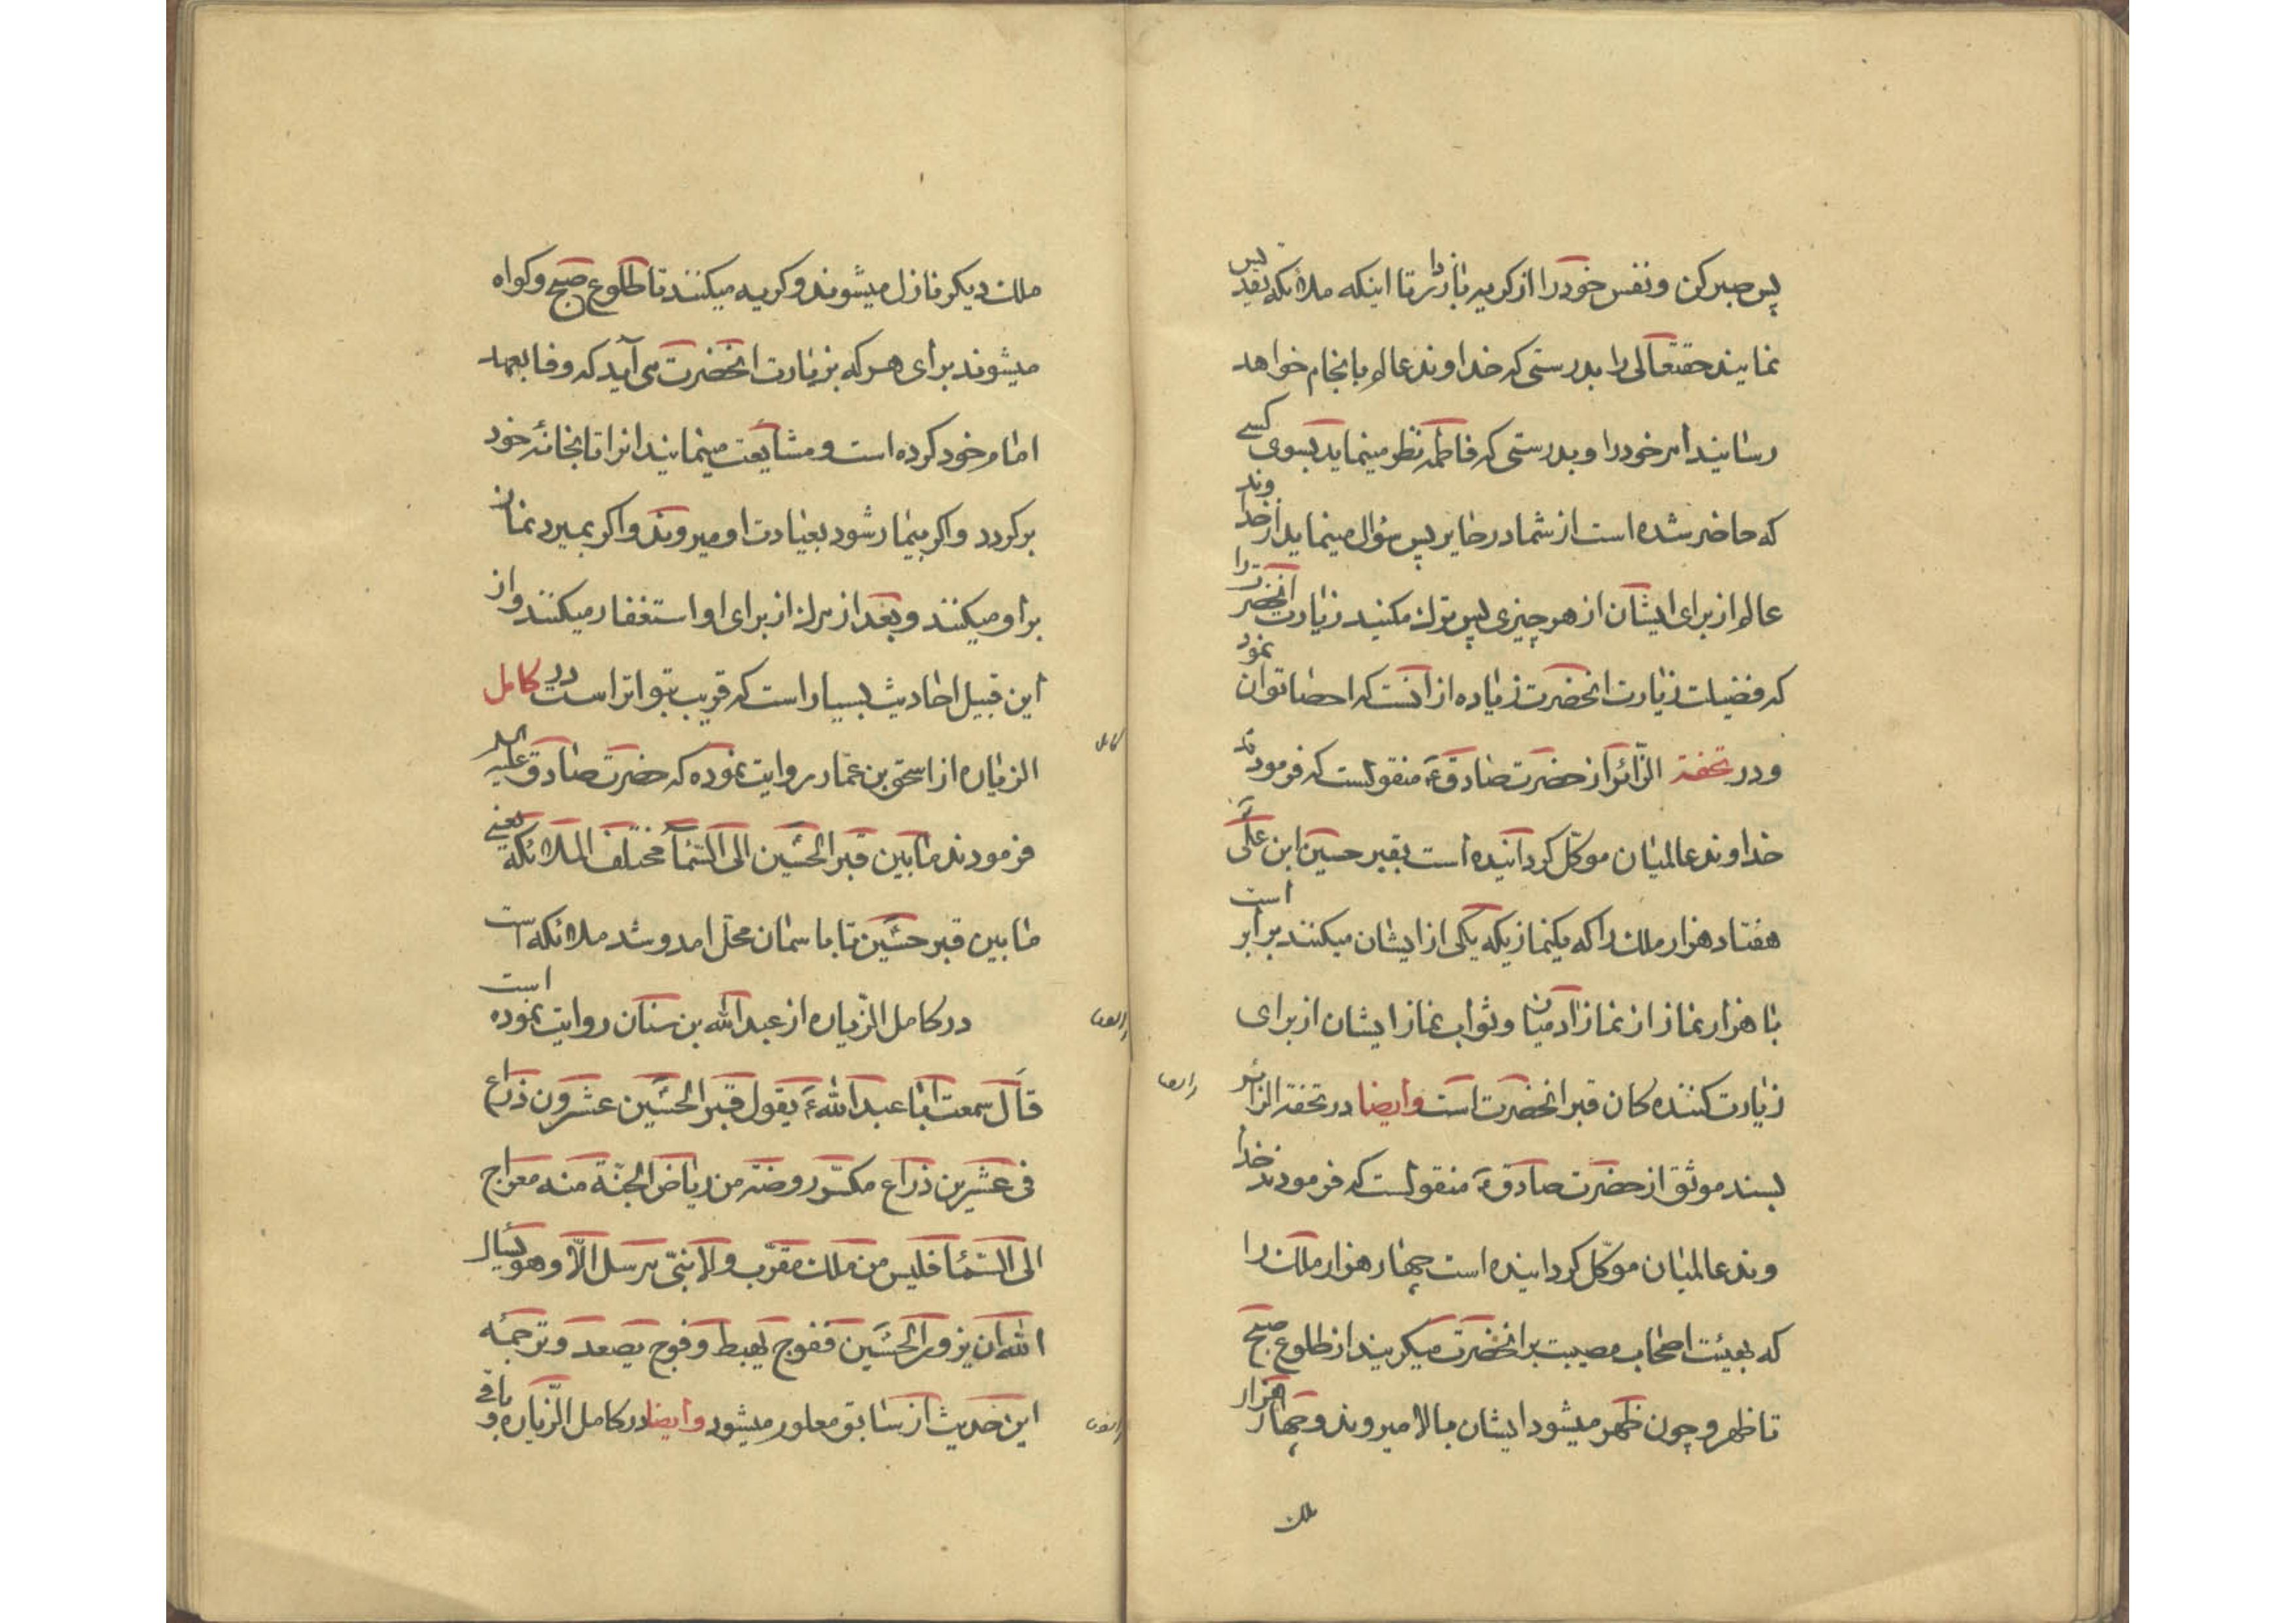 پس صبر کن و نفس خود را از کریه بازدار تا اینکه ملائکه تقدیس
نمایند حقتعالی را بدرستی که خداوند عالم بانجام خواهد
رسانید امر خود را و بدرستی که فاطمه نظر مینماید بسوی کسی
که حاضر شده است از شما در حایر پس سؤال مینماید از خداوند
عالم از برای ایشان از هر چیزی پس ترک مکنید زیارت انحضرت را
که فضیلت زیارت انحضرت زیاده از انست که احصا توان نمود
و در تحفة الزّائر از حضرت صادقؑ منقولست که فرمودند
خداوند عالمیان موکّل کردانیده است بقبر حسین ابن علیؑ
هفتاد هزار ملک را که یکنمازیکه یکی از ایشان میکنند برابر است
با هزار نماز از نماز ادمیان و ثواب نماز ایشان از برای
زیارت کننده کان قبر انحضرت است وایضا در تحفة الزائر
بسند موثق از حضرت صادقؑ منقولست که فرمودند خدا
وند عالمیان موکّل کردانیده است چهار هزار ملک را
که بهیئت اصحاب مصیبت بر انحضرت میکریند از طلوع صبح
تا ظهر و چون ظهر میشود ایشان بالا میروند و چهار هزار
ملک
ملک دیکر نازل میشوند و کریه میکنند تا طلوع صبح و کواه
میشوند برای هر که بزیارت انحضرت می آید که وفا بعهد
امام خود کرده است و مشایعت مینمایند انرا تا بخانهٔ خود
برکردد و اکر بیمار شود بعیادت او میروند و اکر بمیرد نماز
بر او میکنند و بعد از مرک از برای او استغفار میکنند و از
این قبیل احادیث بسیار است که قریب بتواتر است در کامل
الزیاره از اسحق بن عمّار روایت نموده که حضرت صادق علیه السلام
فرمودند ما بین قبر الحسین الی السّمآء مختلف الملائکة یعنی
ما بین قبر حسین تا باسمان محلّ امد و شد ملائکه است
در کامل الزّیاره از عبدالله بن سنان روایت نموده است
قال سمعت ابا عبدالله ؑ یقول قبر الحسین عشرون ذراع
فی عشرین ذراع مکسّر روضة من ریاض الجنّة منه معراج
الی السّمآء فلیس من ملک مقرّب ولا نبیّ مرسل الّا وهو یسأل
الله ان یزور الحسین ففوج یهبط و فوج یصعد و ترجمهٔ
این حدیث از سابق معلوم میشود وایضا در کامل الزّیاره و باقی